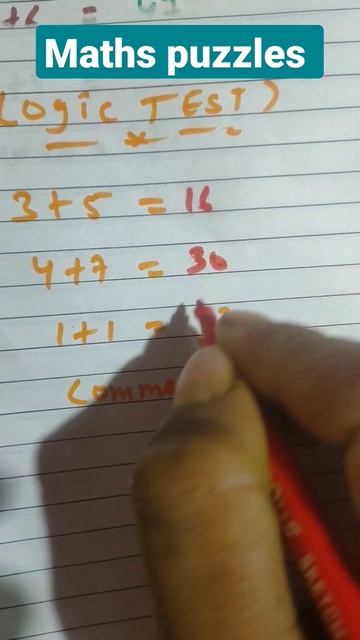 Maths puzzles
Logic TEST)
3+5 = 16
4+7 = 30
1+1 =